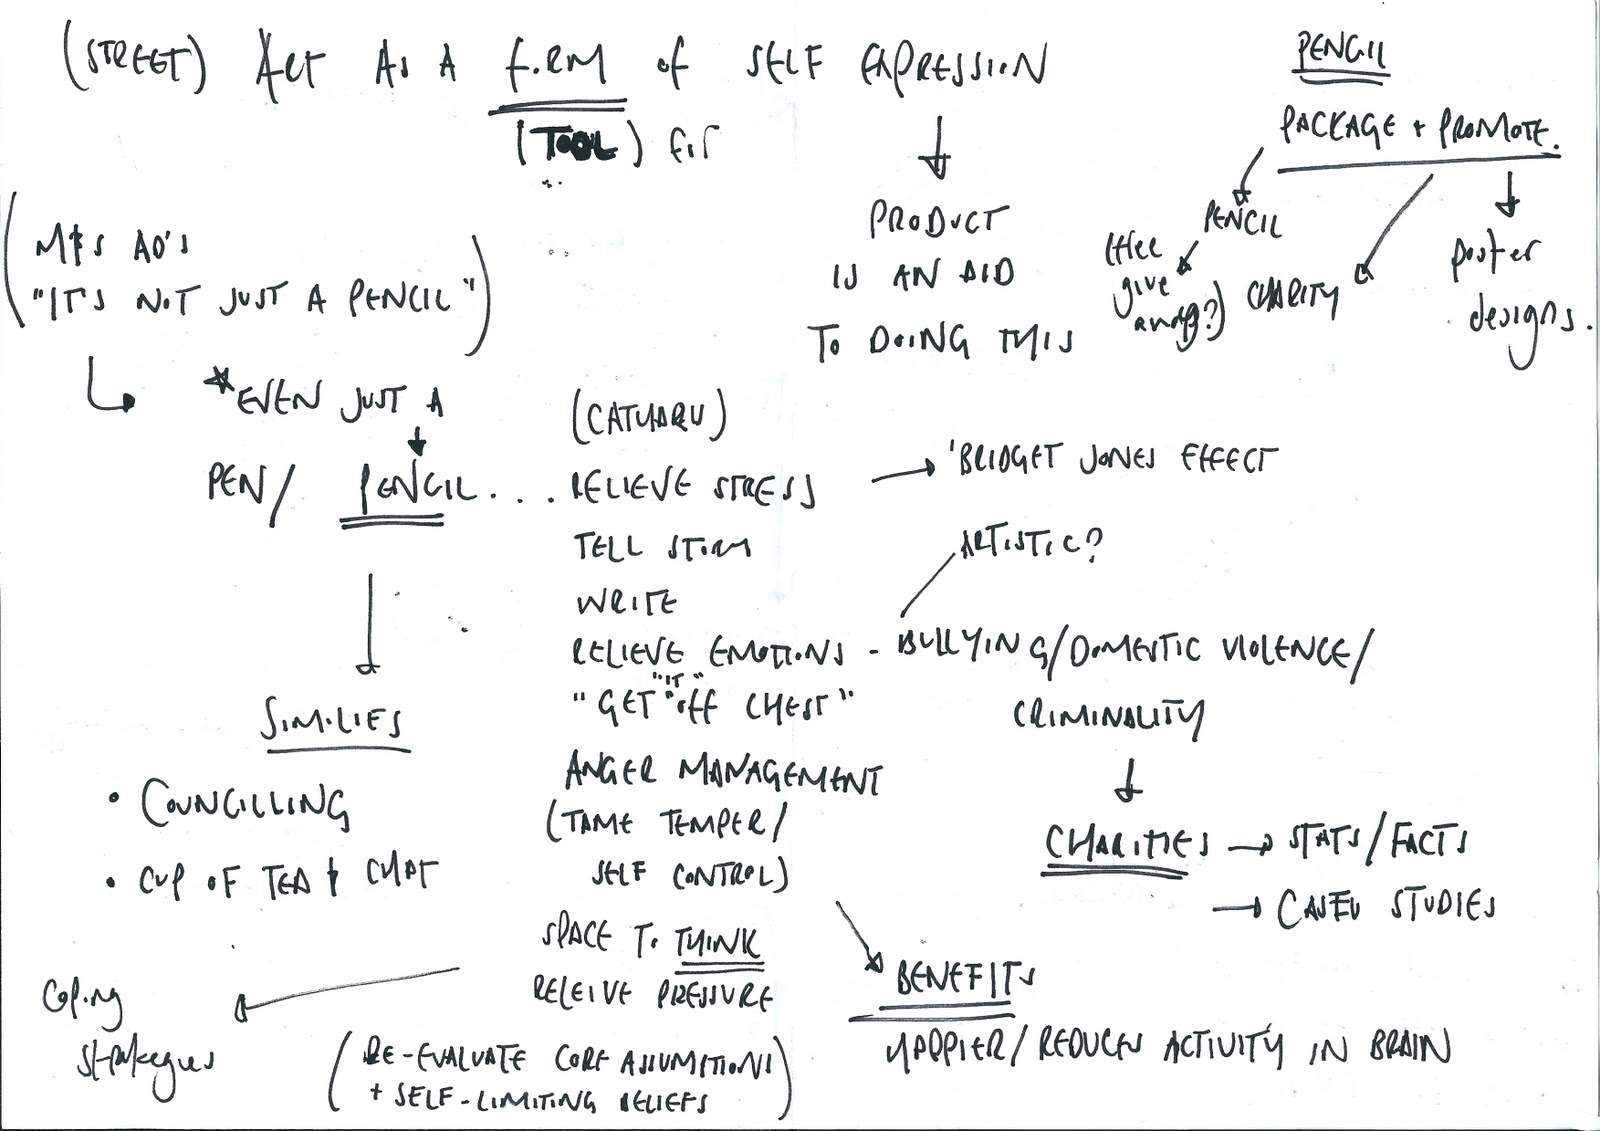 (STREET) ART AS A FORM of SELF EXPRESSION
(TOOL) for
PENCIL
PACKAGE + PROMOTE.
PENCIL
(free
give
away?)
CHARITY
poster
designs.
PRODUCT
IS AN AID
TO DOING THIS
(M&S AD'S
"IT'S NOT JUST A PENCIL")
*EVEN JUST A
PEN/ PENCIL . . .
(CATHARU)
RELIEVE STRESS
'BRIDGET JONES EFFECT
TELL STORY
ARTISTIC?
WRITE
RELIEVE EMOTIONS - BULLYING/DOMESTIC VIOLENCE/
CRIMINALITY
"GET "IT" off CHEST"
ANGER MANAGEMENT
(TAME TEMPER/
SELF CONTROL)
SPACE TO THINK
RELEIVE PRESSURE
(RE-EVALUATE CORE ASSUMPTIONS
+ SELF-LIMITING BELIEFS)
SIMILIES
• COUNCILLING
• CUP OF TEA & CHAT
Coping
strategies
CHARITIES → STATS/FACTS
→ STUDIES
BENEFITS
HAPPIER/REDUCES ACTIVITY IN BRAIN